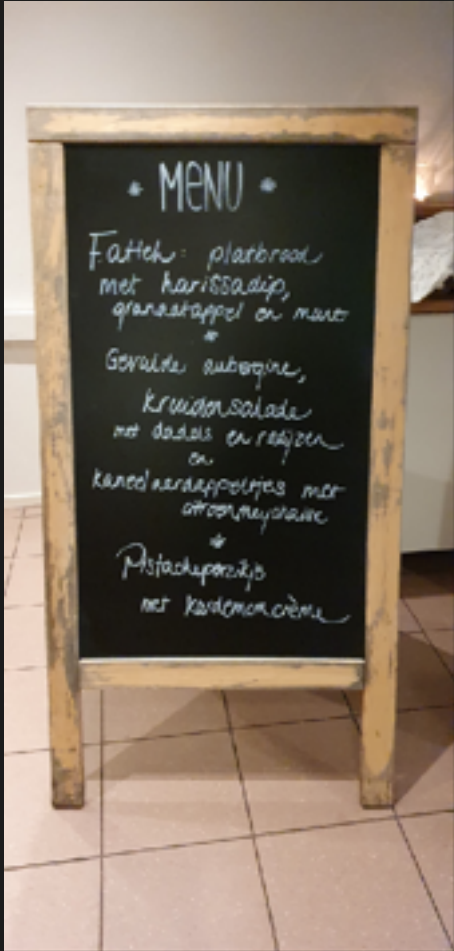 * MENU *
Fatteh: platbrood
met harissadip,
granaatappel en munt
*
Gevulde aubergine,
kruidensalade
met dadels en radijzen
en
kaneelaardappeltjes met
citroenmayonaise
*
Pistache
met kardemomcrème